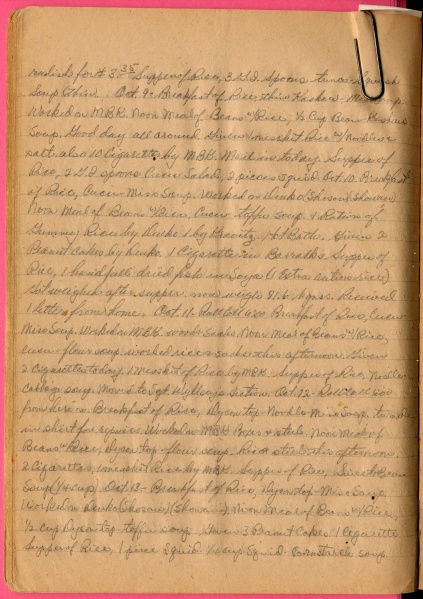 radish for ¥ 3.35 Supper of Rice, 3 T.D. Spoons tuna - Squash
Soup thin. Oct. 9 - Breakfast of Rice, thin Miso Soup.
Worked on M.B.K. Noon Meal of Beans "/Rice, ½ Cup Bean
Soup. Good day all around Given 1 messkit Rice "/ Noodles &
salt; also 10 Cigarettes by M.B.K. Mail in today. Supper of
Rice, 3 T.D. spoons Cucu Salad, 2 pieces squid. Oct. 10. Breakfast
of Rice, Cucu - Miso Soup. Worked on Senko (Shosen) Showa
Noon Meal of Beans "/Rice, Cucu toffu soup. 1 Ration of
Rice by Senko 1 by Bath. Given 2
Peanut Cakes by Senko 1 Cigarette Supper of
Rice, 1 handfull dried fish in Soya (1 Extra ration rice)
Got weighed after supper, now weigh 91.6 kgms. Received
1 letter from home. Oct. 11 - Roll Call 600 Breakfast of Rice, Cucu -
Miso Soup. Worked on M.B.K. Sacks. Noon Meal of Beans "/Rice,
cucu - flour soup. worked rice sacks this afternoon. Given
2 Cigarettes today 1 messkit Rice by M.B.K. Supper of Rice, Noodle -
Cabbage soup. Moved to Sgt. section. Oct. 12 - Roll Call 600
from here on Breakfast of Rice, Dysentop - Noodle - Miso Soup, turned
in shirt for repairs. Worked on M.B.K. & steel. Noon Meal of
Beans "/Rice, Dysentop - flour soup, Rice & steel this afternoon,
2 Cigarettes, 1 messkit Rice by M.B.K. Supper of Rice, Sweet
Soup (¼ cup) Oct. 13 - Breakfast of Rice, Dysentop - Miso Soup
Worked on Senko (Shosen) (Showa). Noon Meal of Beans "/Rice,
½ cup Dysentop - toffu soup. Given 3 Peanut Cakes, 1 Cigarette
Supper of Rice, 1 piece Squid ½ cup Squid - Cornstarch soup